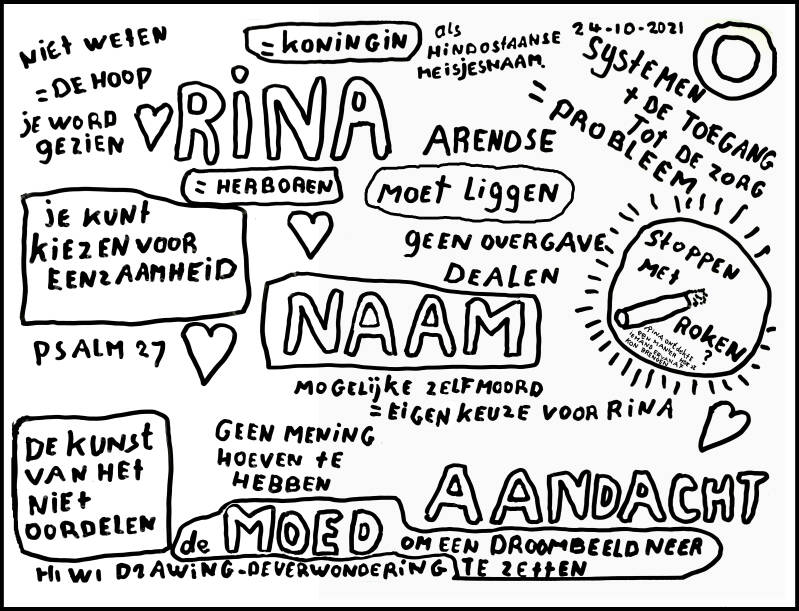 NIET WETEN
= DE HOOP
JE WORD
GEZIEN
= KONINGIN
als
HINDOSTAANSE
MEISJESNAAM.
24-10-2021
SYSTEMEN
+ DE TOEGANG
TOT DE ZORG
= PROBLEEM
RINA
ARENDSE
= HERBOREN
MOET LIGGEN
JE KUNT
KIEZEN VOOR
EENZAAMHEID
GEEN OVERGAVE
DEALEN
STOPPEN
MET
ROKEN
?
RINA ontdekte
EEN MANIER HOE JE
IEMAND ERVANAF
KON BRENGEN
NAAM
PSALM 27
MOGELIJKE ZELFMOORD
= EIGEN KEUZE VOOR RINA
DE KUNST
VAN HET
NIET
OORDELEN
GEEN MENING
HOEVEN TE
HEBBEN
AANDACHT
de MOED OM EEN DROOMBEELD NEER
TE ZETTEN
HIWI DRAWING-DEVERWONDERING